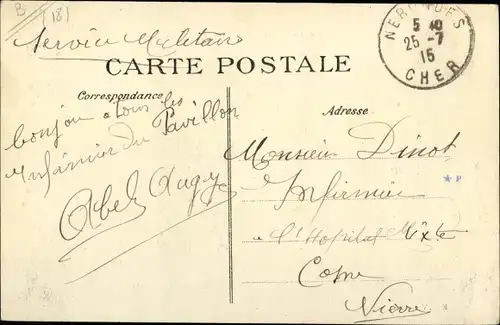 B (18)
Service Militaire
CARTE POSTALE
NERONDES
5 10
25-7
15
CHER
Correspondance
Adresse
bonjou a tous les
Infirmier du Pavillon
Abel Augy
Monsieur Dinot
Infirmier
a l'Hopital Mixte
Cosne
Nievre